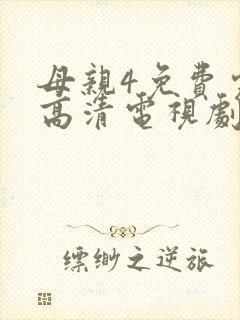 母親4免費
高清電視劇
缥缈之逆旅